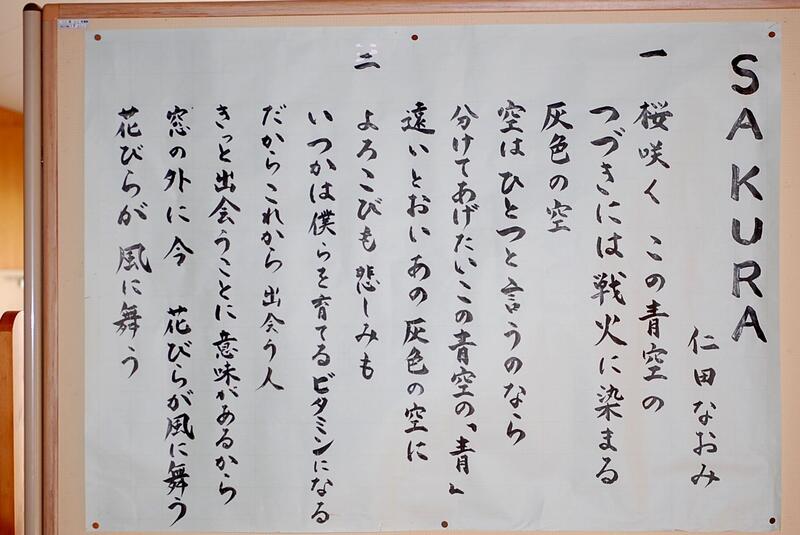 SAKURA
仁田なおみ
一 桜咲く この青空の
つづきには戦火に染まる
灰色の空
空はひとつと言うのなら
分けてあげたいこの青空の、青」
遠いとおいあの灰色の空に
二 よろこびも 悲しみも
いつかは僕らを育てるビタミンになる
だからこれから 出会う人
きっと出会うことに意味があるから
窓の外に今 花びらが風に舞う
花びらが 風に舞う